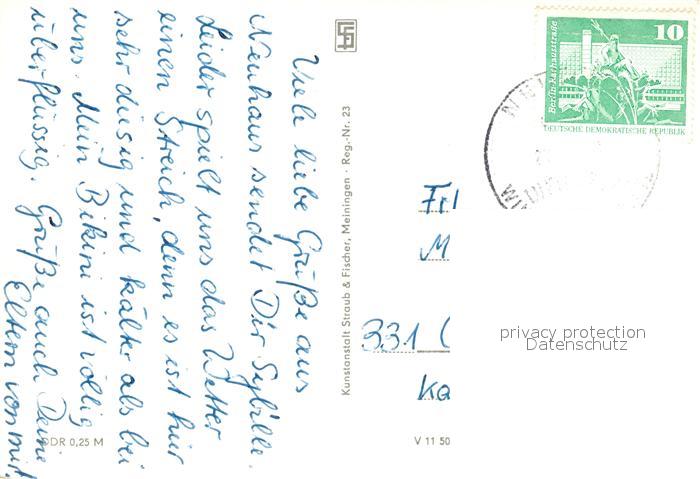 Viele liebe Grüße aus
Neuhaus sendet Dir Sybille.
Leider spielt uns das Wetter
einen Streich, denn es ist hier
sehr dusig und kälter als bei
uns. Mein Bikini ist völlig
überflüssig. Grüße auch Deine
Eltern von mir.
DDR 0,25 M
Kunstanstalt Straub & Fischer, Meiningen · Reg.-Nr. 23
V 11 50
10
Berlin-Rathausstraße
DEUTSCHE DEMOKRATISCHE REPUBLIK
Frl
M
331
Ka
privacy protection
Datenschutz